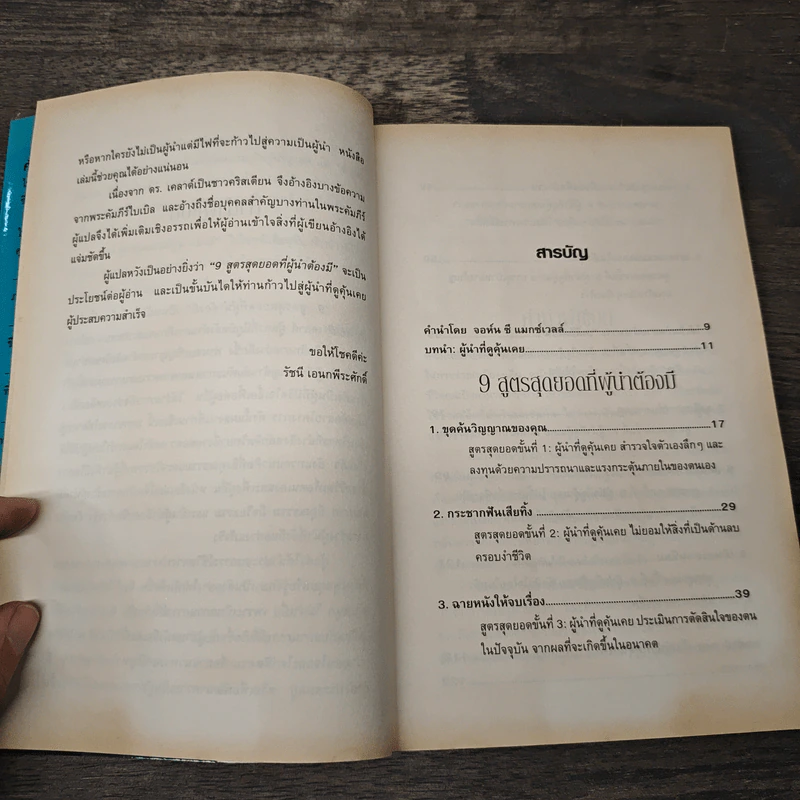 หรือหากใครยังไม่เป็นผู้นำแต่มีไฟที่จะก้าวไปสู่ความเป็นผู้นำ หนังสือ
เล่มนี้ช่วยคุณได้อย่างแน่นอน
เนื่องจาก ดร. เคลาด์เป็นชาวคริสเตียน จึงอ้างอิงบางข้อความ
จากพระคัมภีร์ไบเบิล และอ้างถึงชื่อบุคคลสำคัญบางท่านในพระคัมภีร์
ผู้แปลจึงได้เพิ่มเติมเชิงอรรถเพื่อให้ผู้อ่านเข้าใจสิ่งที่ผู้เขียนอ้างอิงได้
แจ่มชัดขึ้น
ผู้แปลหวังเป็นอย่างยิ่งว่า "9 สูตรสุดยอดที่ผู้นำต้องมี" จะเป็น
ประโยชน์ต่อผู้อ่าน และเป็นขั้นบันไดให้ท่านก้าวไปสู่ผู้นำที่ดูคุ้นเคย
ผู้ประสบความสำเร็จ
ขอให้โชคดีค่ะ
รัชนี เอนกพีระศักดิ์
สารบัญ
คำนำโดย จอห์น ซี แมกซ์เวลล์.....9
บทนำ: ผู้นำที่ดูคุ้นเคย.....11
9 สูตรสุดยอดที่ผู้นำต้องมี
1. ขุดค้นวิญญาณของคุณ.....17
สูตรสุดยอดขั้นที่ 1: ผู้นำที่ดูคุ้นเคย สำรวจใจตัวเองลึกๆ และ
ลงทุนด้วยความปรารถนาและแรงกระตุ้นภายในของตนเอง
2. กระชากฟันเสียทิ้ง.....29
สูตรสุดยอดขั้นที่ 2: ผู้นำที่ดูคุ้นเคย ไม่ยอมให้สิ่งที่เป็นด้านลบ
ครอบงำชีวิต
3. ฉายหนังให้จบเรื่อง.....39
สูตรสุดยอดขั้นที่ 3: ผู้นำที่ดูคุ้นเคย ประเมินการตัดสินใจของตน
ในปัจจุบัน จากผลที่จะเกิดขึ้นในอนาคต